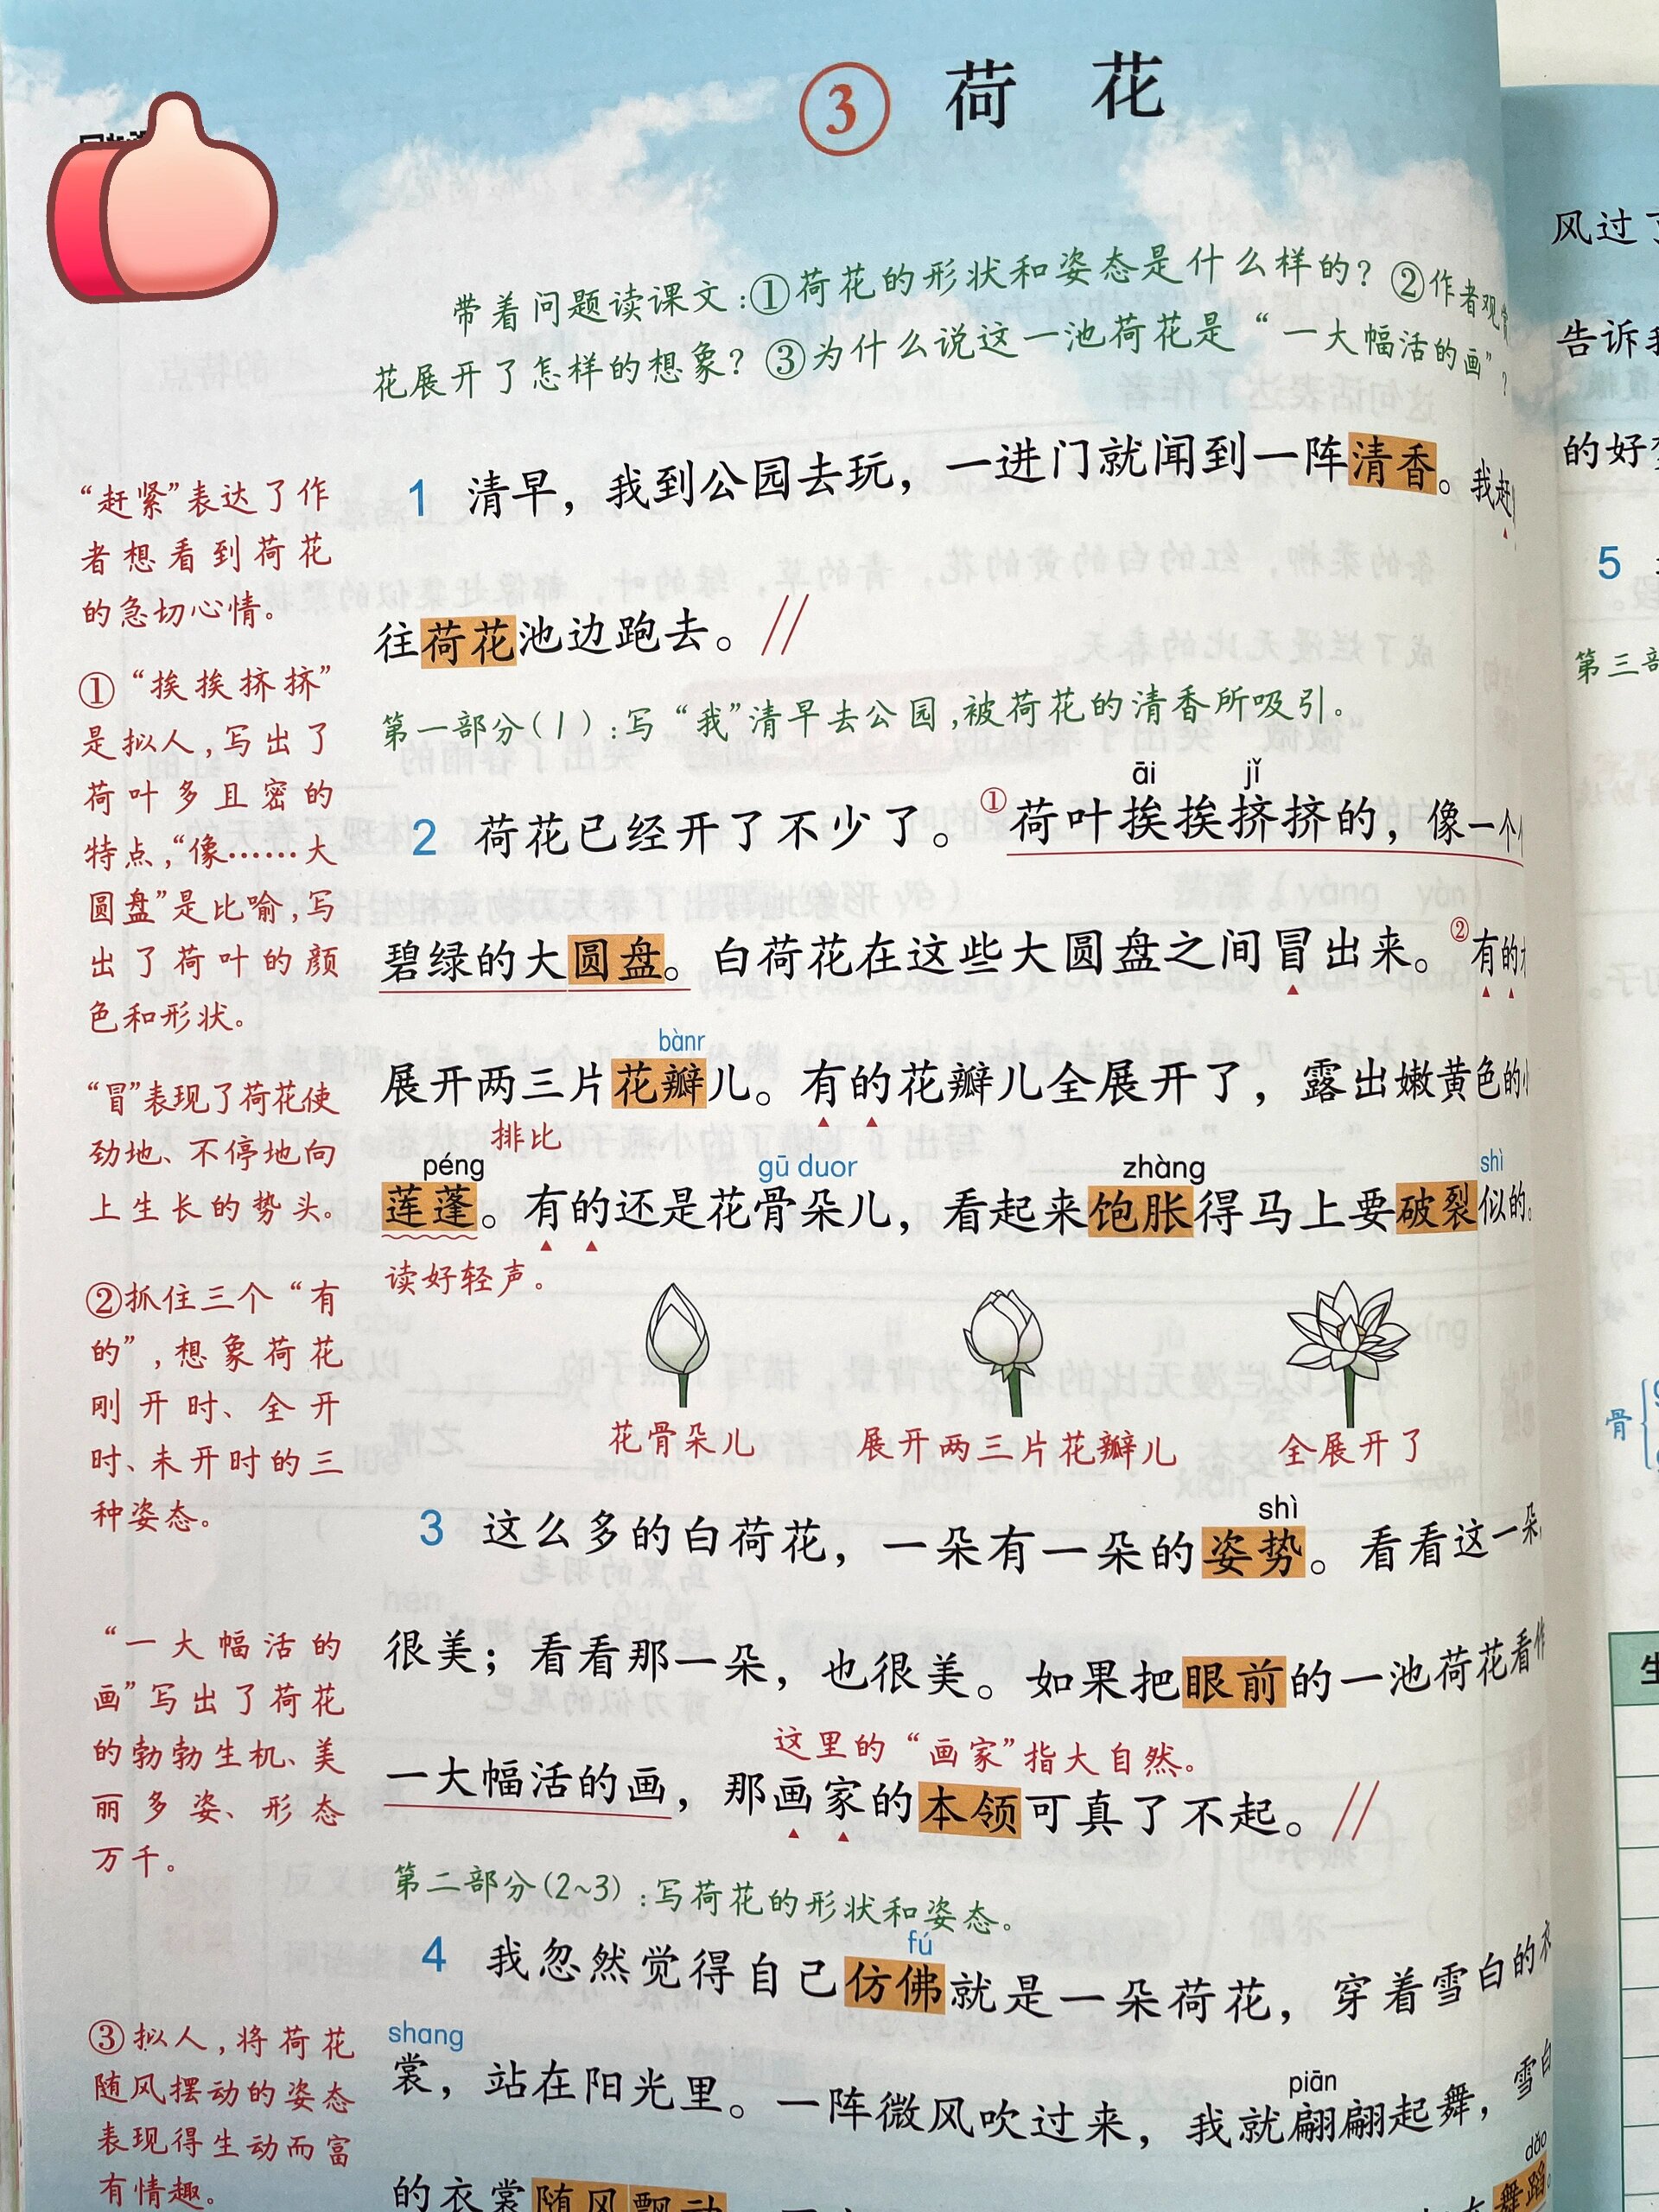 ③ 荷 花
带着问题读课文:①荷花的形状和姿态是什么样的?②作者观
花展开了怎样的想象?③为什么说这一池荷花是“一大幅活的画”?
1 清早，我到公园去玩，一进门就闻到一阵清香。我赶
往荷花池边跑去。//
第一部分(1):写“我”清早去公园,被荷花的清香所吸引。
āi jǐ
2 荷花已经开了不少了。①荷叶挨挨挤挤的，像一个
碧绿的大圆盘。白荷花在这些大圆盘之间冒出来。②有的
bànr
展开两三片花瓣儿。有的花瓣儿全展开了，露出嫩黄色的小
排比
péng gū duor zhàng shì
莲蓬。有的还是花骨朵儿，看起来饱胀得马上要破裂似的。
读好轻声。
花骨朵儿 展开两三片花瓣儿 全展开了
shì
3 这么多的白荷花，一朵有一朵的姿势。看看这一朵，
很美；看看那一朵，也很美。如果把眼前的一池荷花看作
这里的“画家”指大自然。
一大幅活的画，那画家的本领可真了不起。//
第二部分(2~3):写荷花的形状和姿态。
fú
4 我忽然觉得自己仿佛就是一朵荷花，穿着雪白的衣
shang
裳，站在阳光里。一阵微风吹过来，我就翩翩起舞，雪白
piān
dǎo
的衣裳随风飘动
舞蹈。
“赶紧”表达了作
者想看到荷花
的急切心情。
①“挨挨挤挤”
是拟人,写出了
荷叶多且密的
特点,“像……大
圆盘”是比喻,写
出了荷叶的颜
色和形状。
“冒”表现了荷花使
劲地、不停地向
上生长的势头。
②抓住三个“有
的”,想象荷花
刚开时、全开
时、未开时的三
种姿态。
“一大幅活的
画”写出了荷花
的勃勃生机、美
丽多姿、形态
万千。
③拟人,将荷花
随风摆动的姿态
表现得生动而富
有情趣。
风过了
告诉我
的好梦
5
第三部
骨
生